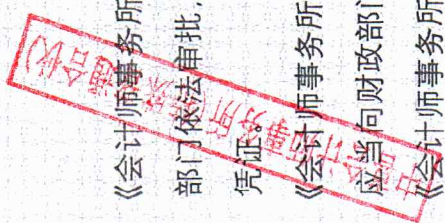 《会计师事务所
部门依法审批,
凭证。
《会计师事务所
应当向财政部门
《会计师事务所
会计师
事务所
合伙)